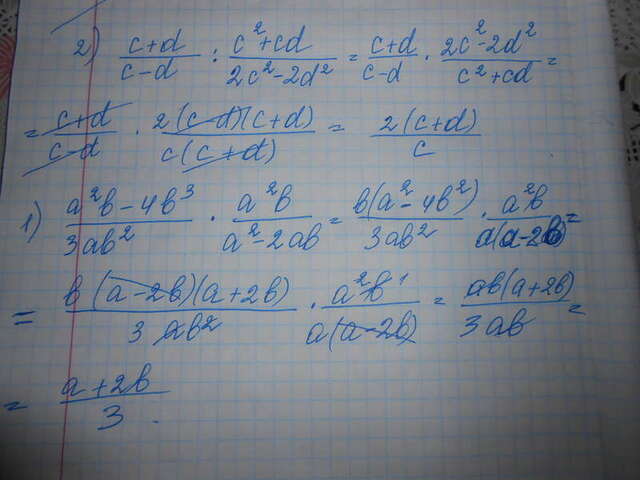 2) (c+d)/(c-d) : (c²+cd)/(2c²-2d²) = (c+d)/(c-d) · (2c²-2d²)/(c²+cd) =
= (c+d)/(c-d) · 2(c-d)(c+d)/c(c+d) = 2(c+d)/c
1) (a²b-4b³)/3ab² · a²b/(a²-2ab) = b(a²-4b²)/3ab² · a²b/a(a-2b) =
= b(a-2b)(a+2b)/3ab² · a²b/a(a-2b) = ab(a+2b)/3ab =
= (a+2b)/3.